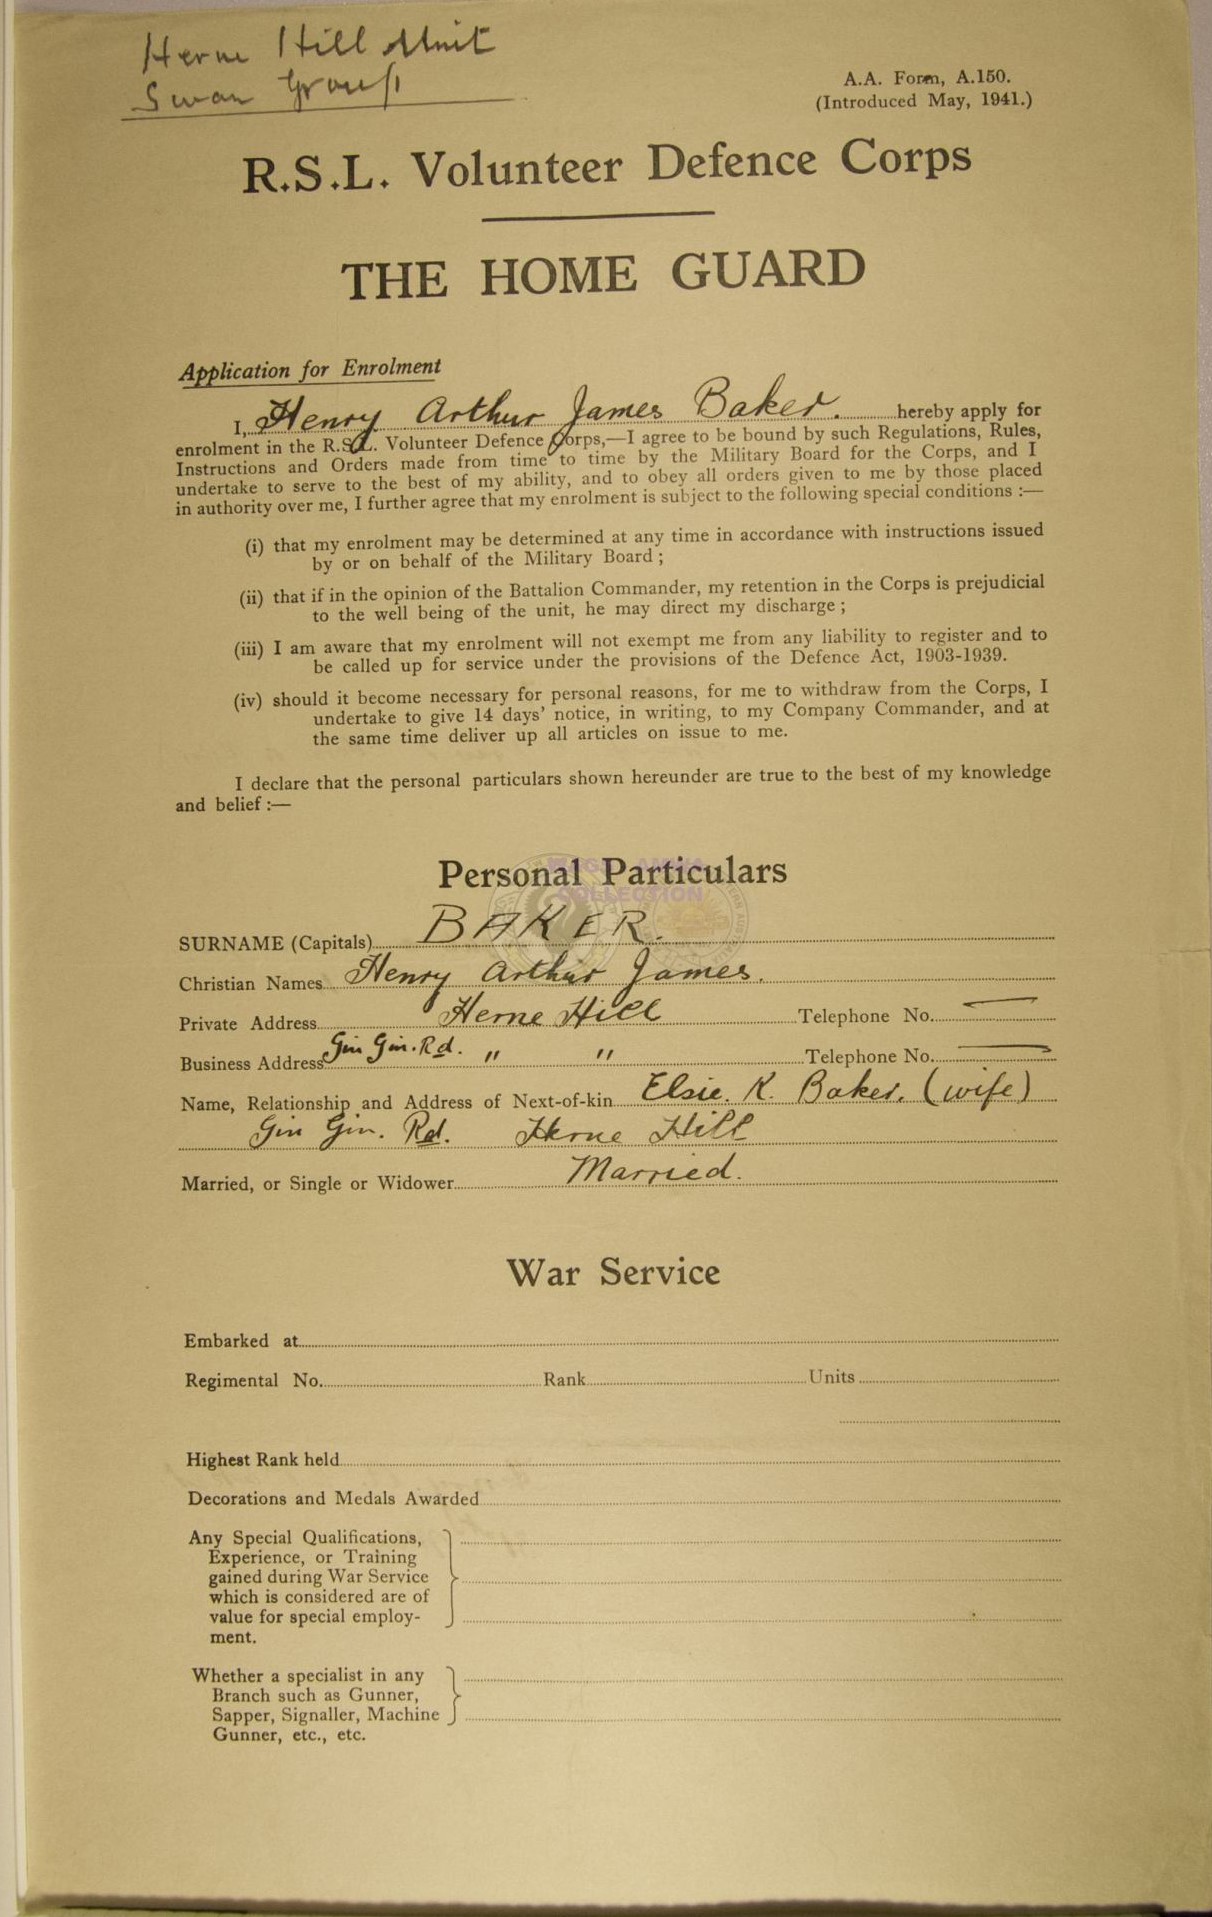 Herne Hill Unit
Swan Group
A.A. Form, A.150.
(Introduced May, 1941.)
R.S.L. Volunteer Defence Corps
THE HOME GUARD
Application for Enrolment
I, Henry Arthur James Baker. hereby apply for
enrolment in the R.S.L. Volunteer Defence Corps,—I agree to be bound by such Regulations, Rules,
Instructions and Orders made from time to time by the Military Board for the Corps, and I
undertake to serve to the best of my ability, and to obey all orders given to me by those placed
in authority over me, I further agree that my enrolment is subject to the following special conditions :—
(i) that my enrolment may be determined at any time in accordance with instructions issued
by or on behalf of the Military Board ;
(ii) that if in the opinion of the Battalion Commander, my retention in the Corps is prejudicial
to the well being of the unit, he may direct my discharge ;
(iii) I am aware that my enrolment will not exempt me from any liability to register and to
be called up for service under the provisions of the Defence Act, 1903-1939.
(iv) should it become necessary for personal reasons, for me to withdraw from the Corps, I
undertake to give 14 days' notice, in writing, to my Company Commander, and at
the same time deliver up all articles on issue to me.
I declare that the personal particulars shown hereunder are true to the best of my knowledge
and belief :—
Personal Particulars
COLLECTION
SURNAME (Capitals) BAKER.
Christian Names Henry Arthur James.
Private Address Herne Hill Telephone No. —
Business Address Gin Gin. Rd. " " Telephone No. —
Name, Relationship and Address of Next-of-kin Elsie. K. Baker. (wife)
Gin Gin. Rd. Herne Hill
Married, or Single or Widower Married.
War Service
Embarked at
Regimental No. Rank Units
Highest Rank held
Decorations and Medals Awarded
Any Special Qualifications,
Experience, or Training
gained during War Service
which is considered are of
value for special employ-
ment.
Whether a specialist in any
Branch such as Gunner,
Sapper, Signaller, Machine
Gunner, etc., etc.